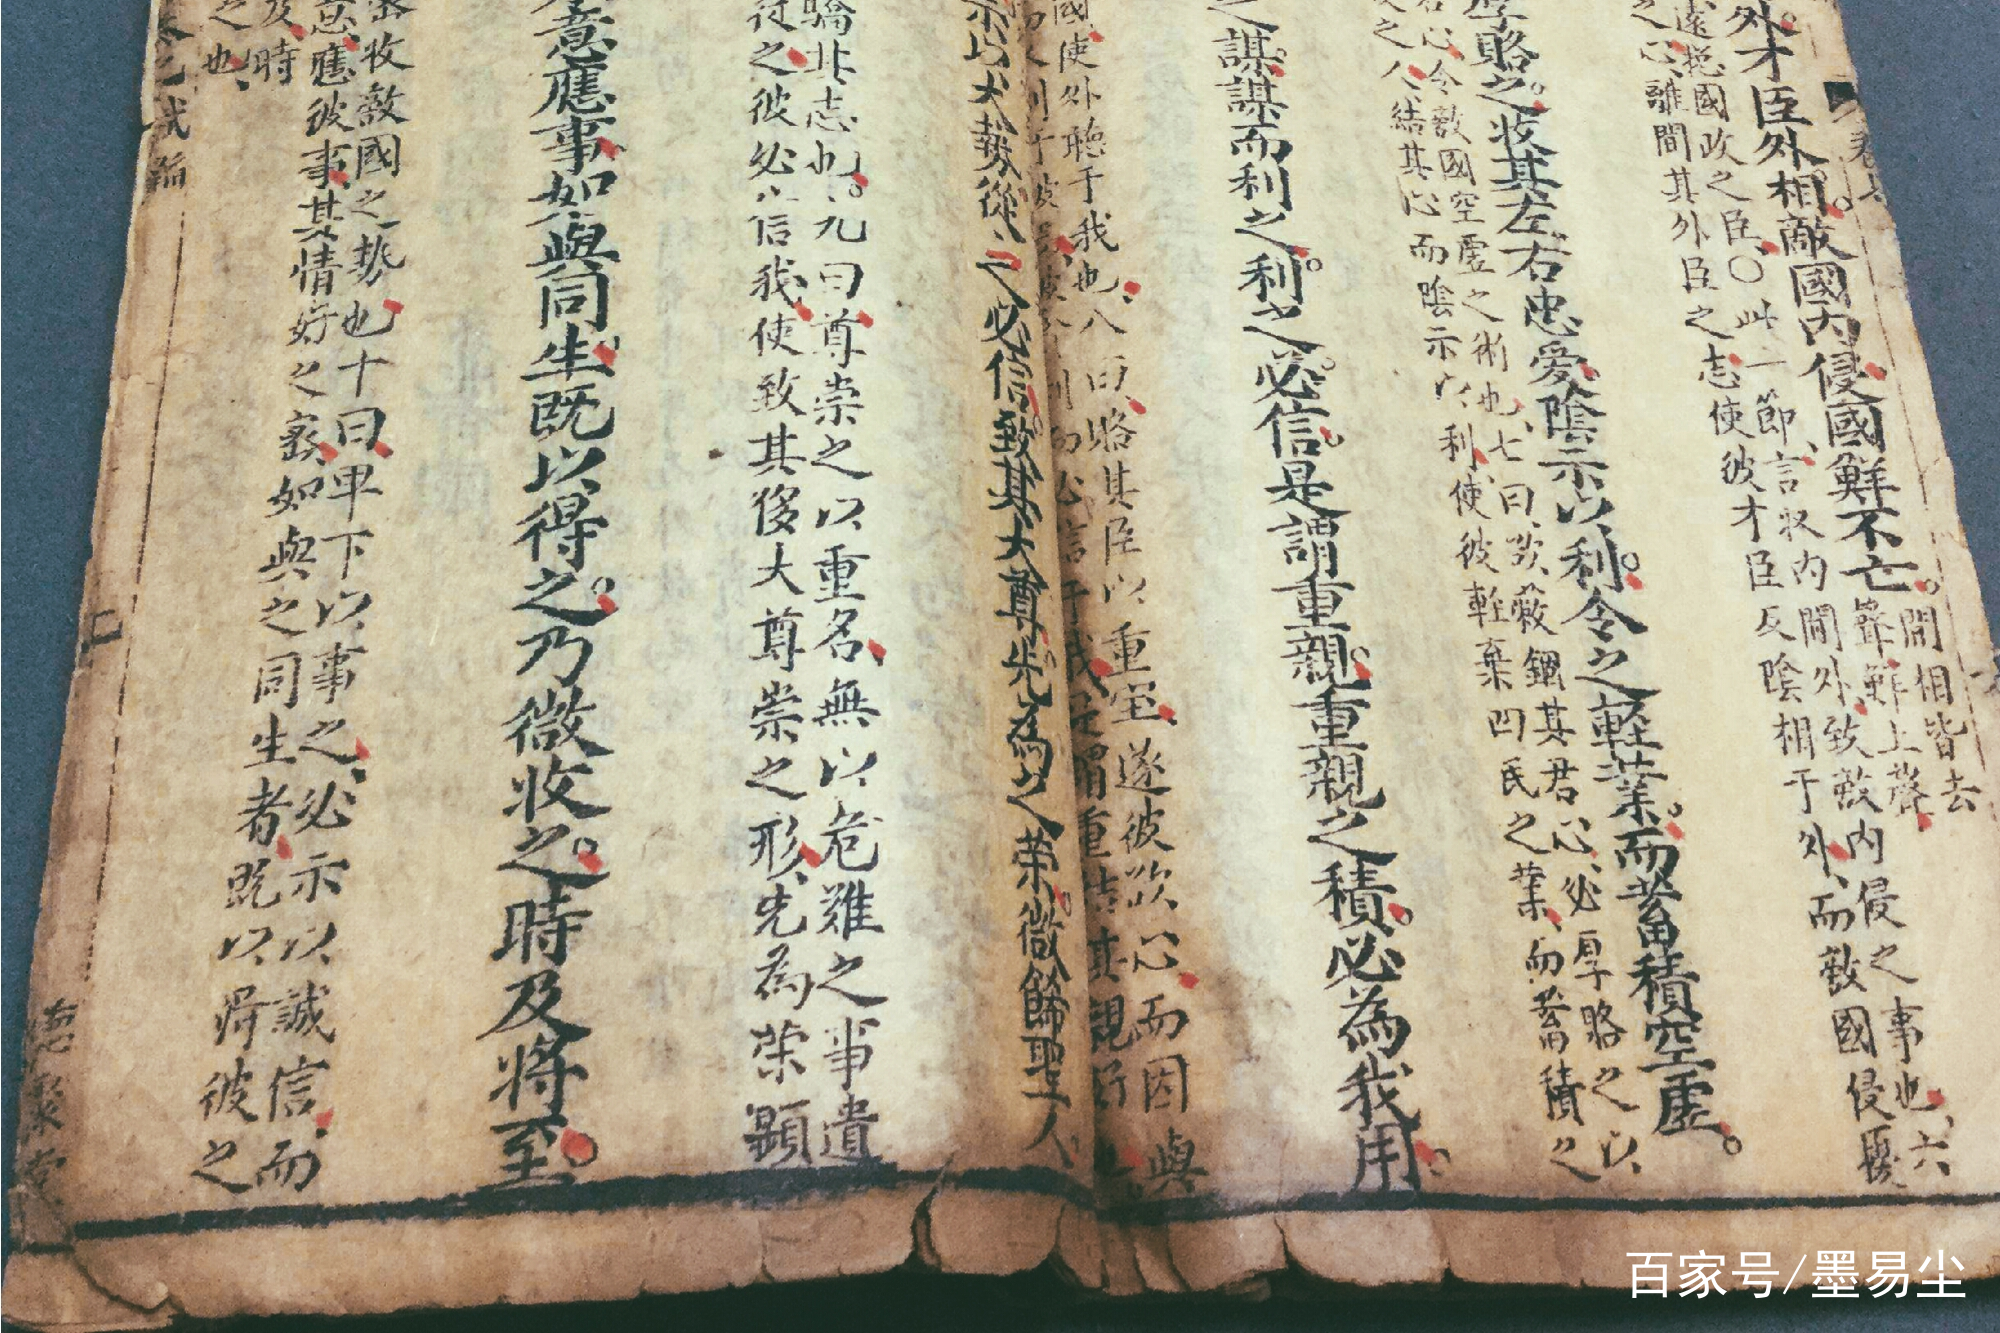 外才臣外相敵國内侵國鮮不亡
間相皆去
聲鮮上聲
遠抱國政之臣○此一節言收内間外致敵内侵之事也六
之心離間其外臣之志使彼才臣反陰相于外而敵國侵擾
厚賂之收其左右忠愛陰示以利令之輕業而蓄積空虛
君心令敵國空虛之術也七曰欲蔽錮其君心必厚賂之以
之人結其心而陰示以利使彼輕棄四民之業而蓄積之
之謀謀而利之利之必信是謂重親重親之積必為我用
國使外聽于我也八曰賂其臣以重宝遂彼欲心而因與
信于我是謂重結其親好
示以大勢從之必信致其大尊先為之榮微飾聖人
驕其志也九曰尊崇之以重名無以危難之事遺
從之彼必以信我使致其侈大尊崇之形先為榮顯
意應事如與同生既以得之乃微收之時及將至
密收敵國之勢也十曰卑下以事之必示以誠信而
意應彼事其情好之密如與之同生者既以得彼之
及時
之也
二
百家号/墨易尘